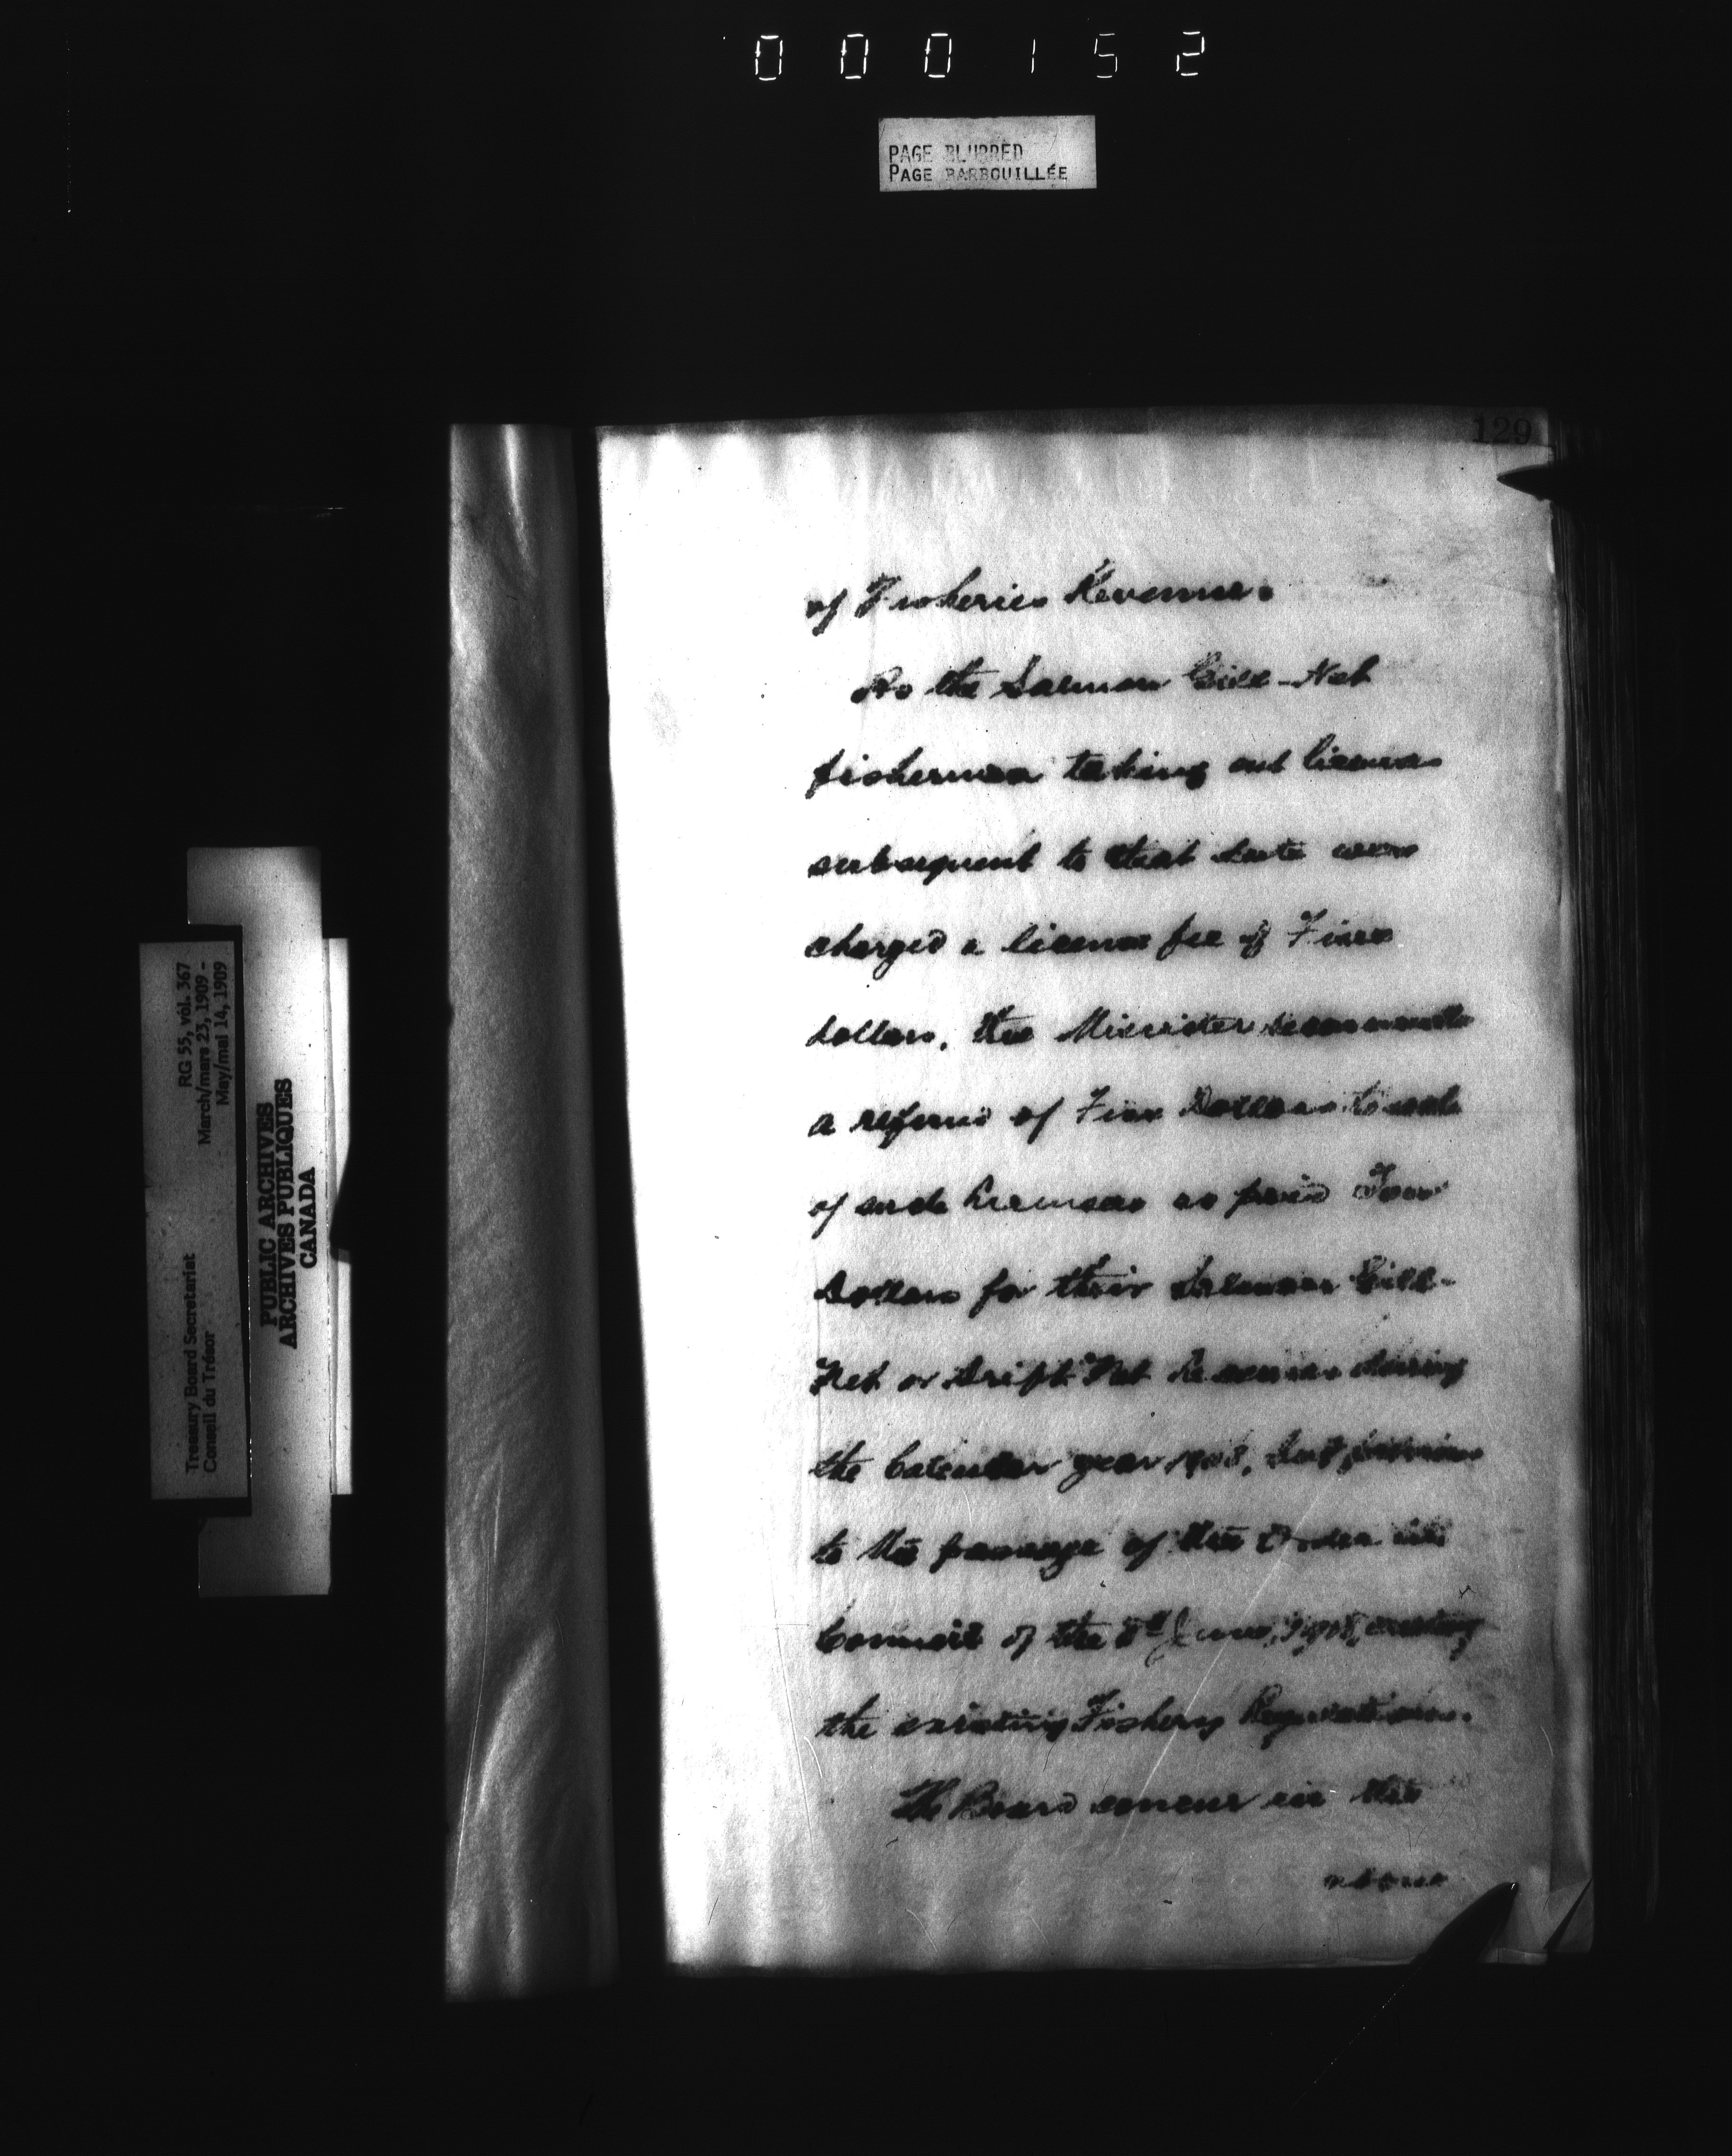 0 0 0 1 5 2
PAGE BLURRED
PAGE BARBOUILLÉE
129
of Fisheries Revenue.
As the Salmon Gill-Net
fishermen taking out licenses
subsequent to that date were
charged a license fee of Five
dollars, the Minister recommends
a refund of Five Dollars to each
of such licensees as paid Ten
Dollars for their Salmon Gill-
Net or Drift Net licenses during
the Calendar year 1908, but previous
to the passage of the Order in
Council of the 8th June, 1908, creating
the existing Fishery Regulations.
The Board concur in the
above
RG 55, vol. 367
March/mars 23, 1909 -
May/mai 14, 1909
Treasury Board Secretariat
Conseil du Trésor
PUBLIC ARCHIVES
ARCHIVES PUBLIQUES
CANADA